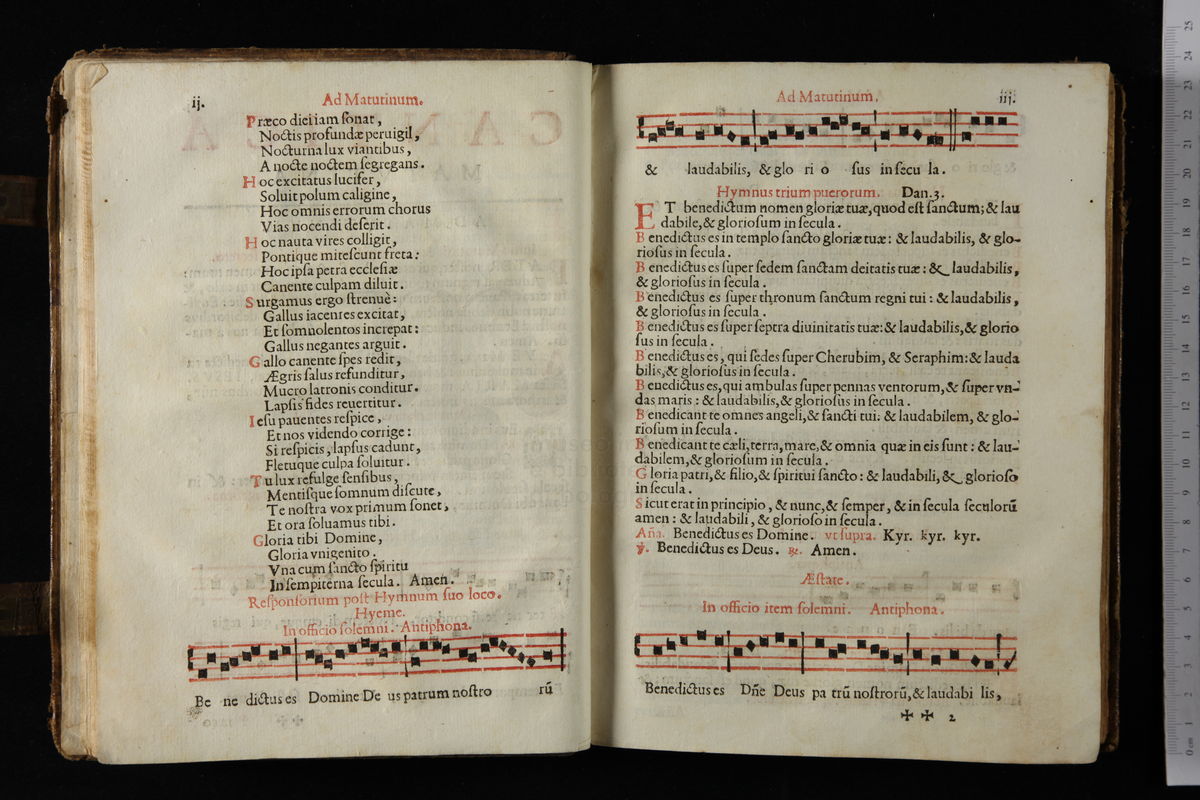 ij.
Ad Matutinum.
Præco diei iam ſonat,
Noctis profundæ peruigil,
Nocturna lux viantibus,
A nocte noctem ſegregans.
Hoc excitatus lucifer,
Soluit polum caligine,
Hoc omnis errorum chorus
Vias nocendi deſerit.
Hoc nauta vires colligit,
Pontique miteſcunt freta:
Hoc ipſa petra eccleſiæ
Canente culpam diluit.
Surgamus ergo ſtrenuè:
Gallus iacentes excitat,
Et ſomnolentos increpat:
Gallus negantes arguit.
Gallo canente ſpes redit,
Ægris ſalus refunditur,
Mucro latronis conditur.
Lapſis fides reuertitur.
Ieſu pauentes reſpice,
Et nos videndo corrige:
Si reſpicis, lapſus cadunt,
Fletuque culpa ſoluitur.
Tu lux refulge ſenſibus,
Mentiſque ſomnum diſcute,
Te noſtra vox primum ſonet,
Et ora ſoluamus tibi.
Gloria tibi Domine,
Gloria vnigenito.
Vna cum ſancto ſpiritu
In ſempiterna ſecula. Amen.
Reſponſorium poſt Hymnum ſuo loco.
Hyeme.
In officio ſolemni. Antiphona.
Be ne dictus es Domine De us patrum noſtro rũ
Ad Matutinum.
iij.
& laudabilis, & glo ri o ſus in ſecu la.
Hymnus trium puerorum. Dan.3.
ET benedictum nomen gloriæ tuæ, quod eſt ſanctum; & lau
dabile, & glorioſum in ſecula.
Benedictus es in templo ſancto gloriæ tuæ: & laudabilis, & glo-
rioſus in ſecula.
Benedictus es ſuper ſedem ſanctam deitatis tuæ: & laudabilis,
& glorioſus in ſecula.
Benedictus es ſuper thronum ſanctum regni tui: & laudabilis,
& glorioſus in ſecula.
Benedictus es ſuper ſeptra diuinitatis tuæ: & laudabilis, & glorio
ſus in ſecula.
Benedictus es, qui ſedes ſuper Cherubim, & Seraphim: & lauda
bilis, & glorioſus in ſecula.
Benedictus es, qui ambulas ſuper pennas ventorum, & ſuper vn-
das maris: & laudabilis, & glorioſus in ſecula.
Benedicant te omnes angeli, & ſancti tui: & laudabilem, & glo-
rioſum in ſecula.
Benedicant te cæli, terra, mare, & omnia quæ in eis ſunt: & lau-
dabilem, & glorioſum in ſecula.
Gloria patri, & filio, & ſpiritui ſancto: & laudabili, & glorioſo
in ſecula.
Sicut erat in principio, & nunc, & ſemper, & in ſecula ſeculorũ
amen: & laudabili, & glorioſo in ſecula.
Aña. Benedictus es Domine. vt ſupra. Kyr. kyr. kyr.
℣. Benedictus es Deus. ℟. Amen.
Æſtate.
In officio item ſolemni. Antiphona.
Benedictus es Dñe Deus pa trũ noſtrorũ, & laudabi lis,
✠ ✠ 2